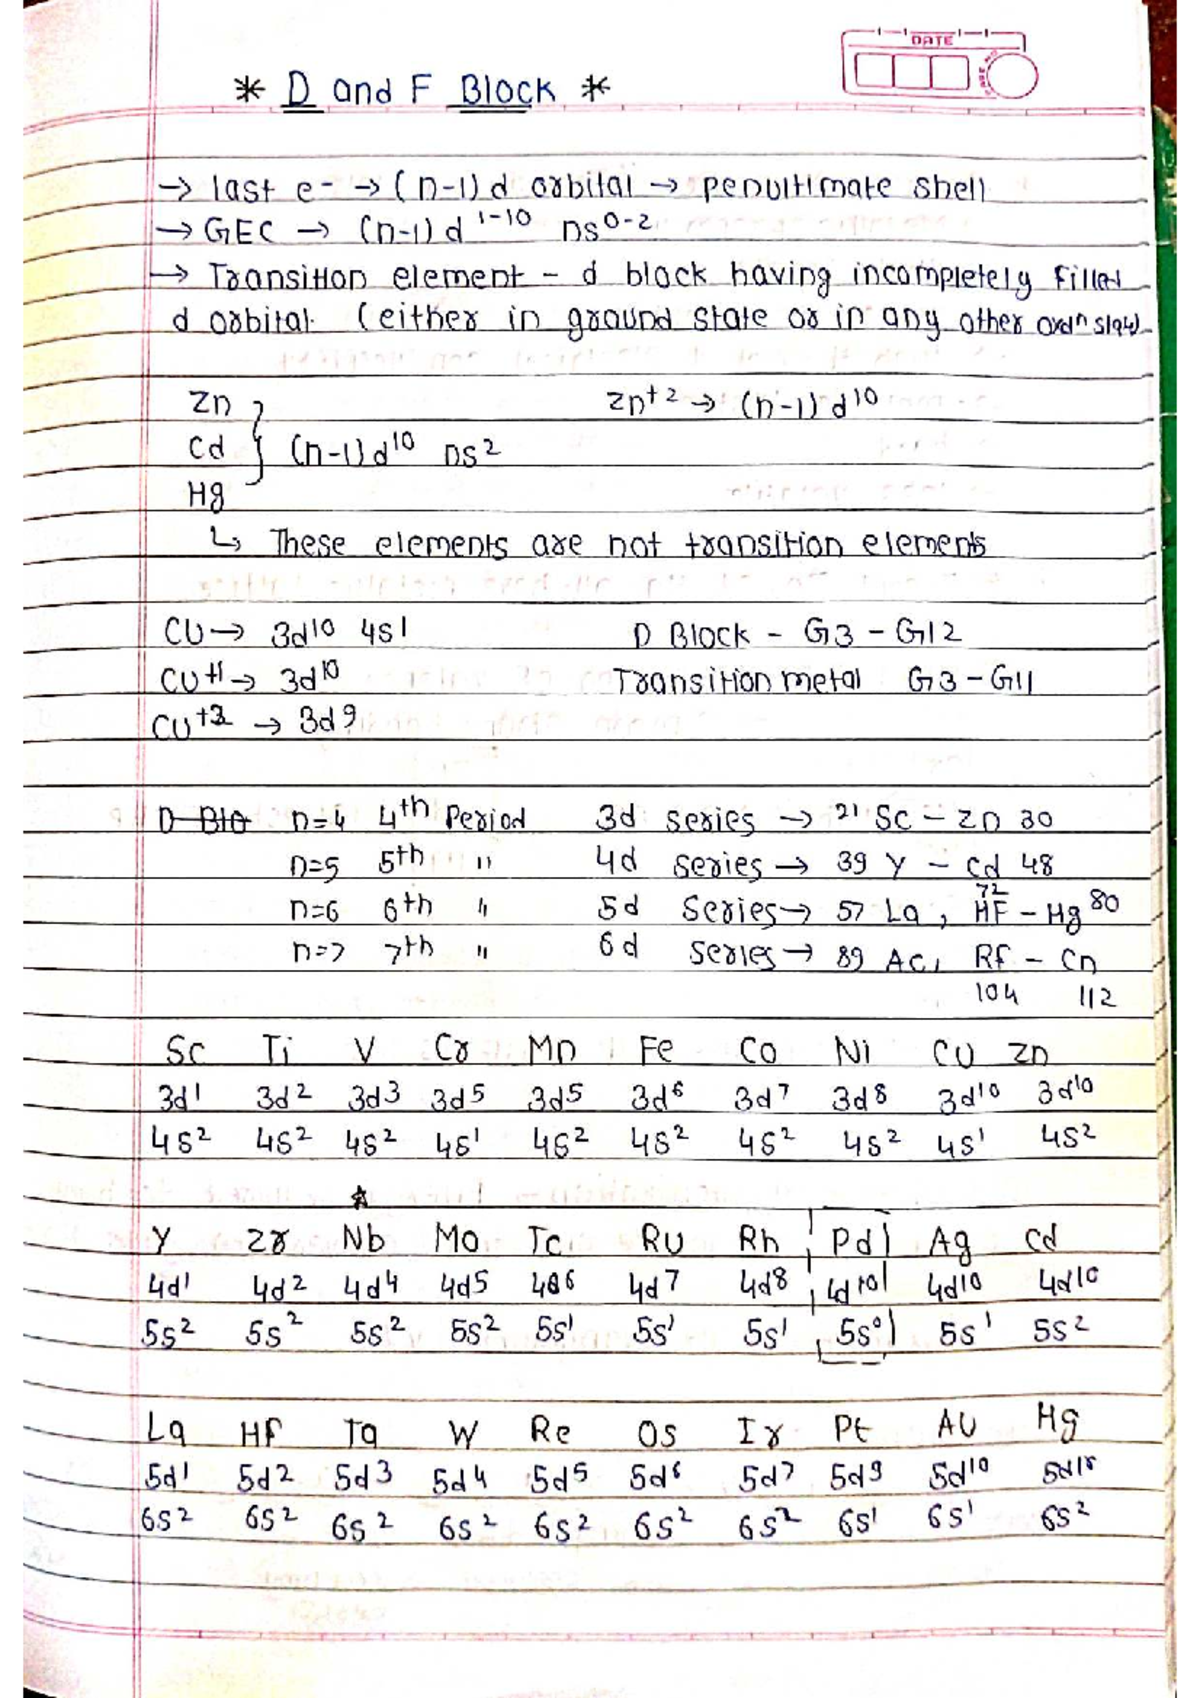 DATE
* D and F Block *
→ last e- → (n-1)d orbital → penultimate shell
→ GEC → (n-1)d 1-10 ns0-2
→ Transition element - d block having incompletely filled
d orbital. (either in ground state or in any other oxdn state)
Zn
Zn+2 → (n-1)d10
Cd } (n-1)d10 ns2
Hg
↳ These elements are not transition elements
Cu → 3d10 4s1 D Block - G3 - G12
Cu+1 → 3d10 Transition metal G3 - G11
Cu+2 → 3d9
D Blo n=4 4th Period 3d series → 21 Sc - Zn 30
n=5 5th " 4d series → 39 Y - Cd 48
n=6 6th " 5d series → 57 La, 72 HF - Hg 80
n=7 7th " 6d series → 89 Ac, Rf - Cn
104 112
Sc Ti V Cr Mn Fe Co Ni Cu Zn
3d1 3d2 3d3 3d5 3d5 3d6 3d7 3d8 3d10 3d10
4s2 4s2 4s2 4s1 4s2 4s2 4s2 4s2 4s1 4s2
Y Zr Nb Mo Tc Ru Rh Pd Ag Cd
4d1 4d2 4d4 4d5 4d6 4d7 4d8 4d10 4d10 4d10
5s2 5s2 5s2 5s2 5s1 5s1 5s1 5s0 5s1 5s2
La HF Ta W Re Os Ir Pt AU Hg
5d1 5d2 5d3 5d4 5d5 5d6 5d7 5d9 5d10 5d10
6s2 6s2 6s2 6s2 6s2 6s2 6s2 6s1 6s1 6s2